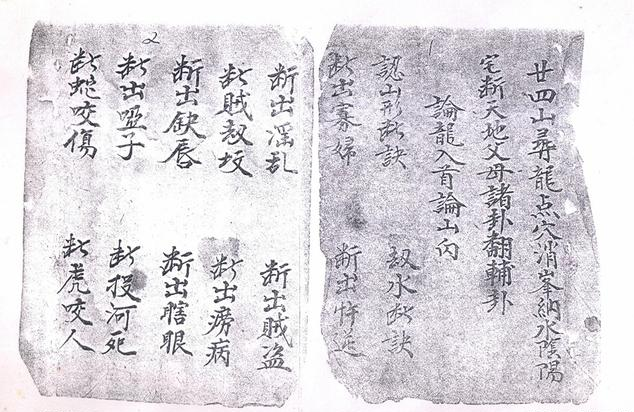 1
廿四山尋龍点穴消峯納水陰陽
宅断天地父母諸卦翻輔卦
論龍入首論山向
認山形断訣 水断訣
断出寡婦 断出忤逆
2
断出滛乱 断出賊盗
断賊坟 断出癆病
断出缺唇 断出瞎眼
断出啞子 断投河死
断蛇咬傷 断虎咬人